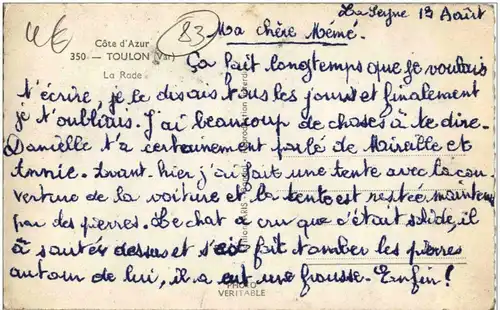 83
La Seyne 13 Août
Ma chère Mémé.
Côte d'Azur
350 — TOULON (Var)
La Rade
Ça fait longtemps que je voulais
t'écrire, je le disais tous les jours et finalement
je t'oubliais. J'ai beaucoup de choses à te dire.
Danielle t'a certainement parlé de Mireille et
Annie. Avant-hier j'ai fait une tente avec la cou-
verture de la voiture et la tente est restée maintenu
par des pierres. Le chat a cru que c'était solide, il
à sauter dessus et s'est fait tomber les pierres
autour de lui, il a eut une frousse. Enfin!
PHOTO
VERITABLE